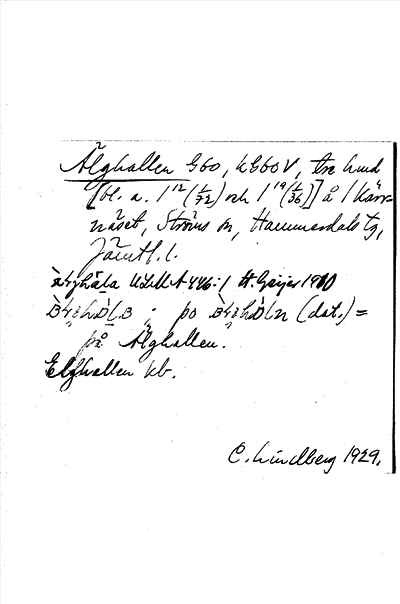 Älghallen Gbo, kGboV, tre hmd
[bl. a. 1¹² (1/72) och 1¹⁹ (1/36)] å 1 Kärr-
näset, Ströms sn, Hammerdals tg,
Jämtl. l.
ULMA 446:1 H. Geijer 1900
; po (dat.) =
på Älghallen.
Elghallen kb.
C. Lindberg 1929.